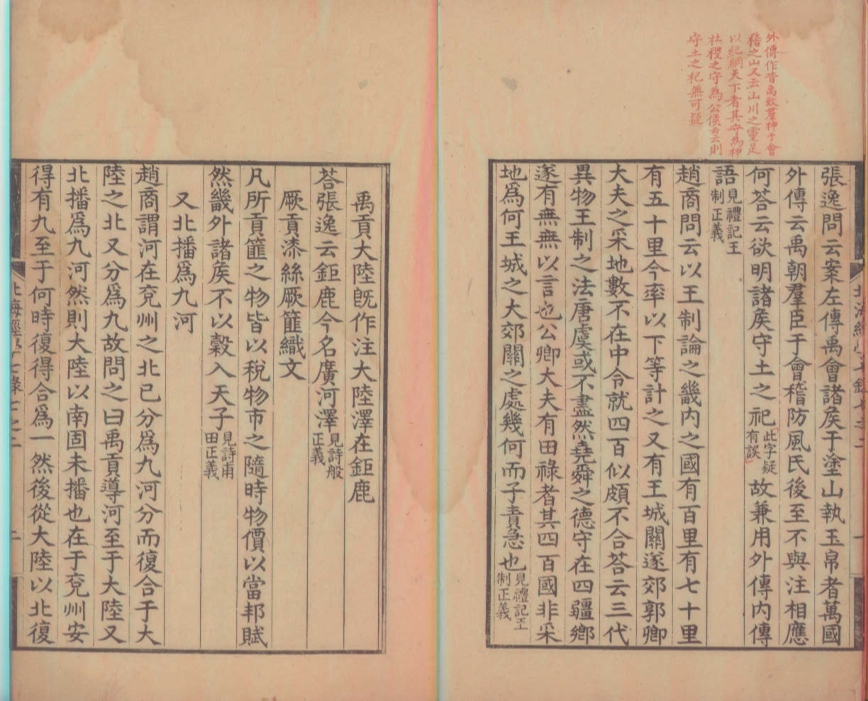 外傳作昔禹致羣神于會
稽之山又云山川之靈足
以紀綱天下者其守為神
社稷之守為公侯則
守土之祀無可疑
張逸問云案左傳禹會諸矦于塗山執玉帛者萬國
外傳云禹朝羣臣于會稽防風氏後至不與注相應
何荅云欲明諸矦守土之祀此字疑有誤故兼用外傳內傳
語見禮記王制正義
趙商問云以王制論之畿內之國有百里有七十里
有五十里今率以下等計之又有王城關遂郊郭卿
大夫之采地數不在中令就四百似頗不合荅云三代
異物王制之法唐虞或不盡然堯舜之德守在四疆鄉
遂有無無以言也公卿大夫有田祿者其四百國非采
地爲何王城之大郊關之處幾何而子責急也見禮記王制正義
禹貢大陸旣作注大陸澤在鉅鹿
荅張逸云鉅鹿今名廣河澤見詩般正義
厥貢漆絲厥篚織文
凡所貢篚之物皆以稅物市之隨時物價以當邦賦
然畿外諸矦不以穀入天子見詩甫田正義
又北播爲九河
趙商謂河在兗州之北已分爲九河分而復合于大
陸之北又分爲九故問之曰禹貢導河至于大陸又
北播爲九河然則大陸以南固未播也在于兗州安
得有九至于何時復得合爲一然後從大陸以北復